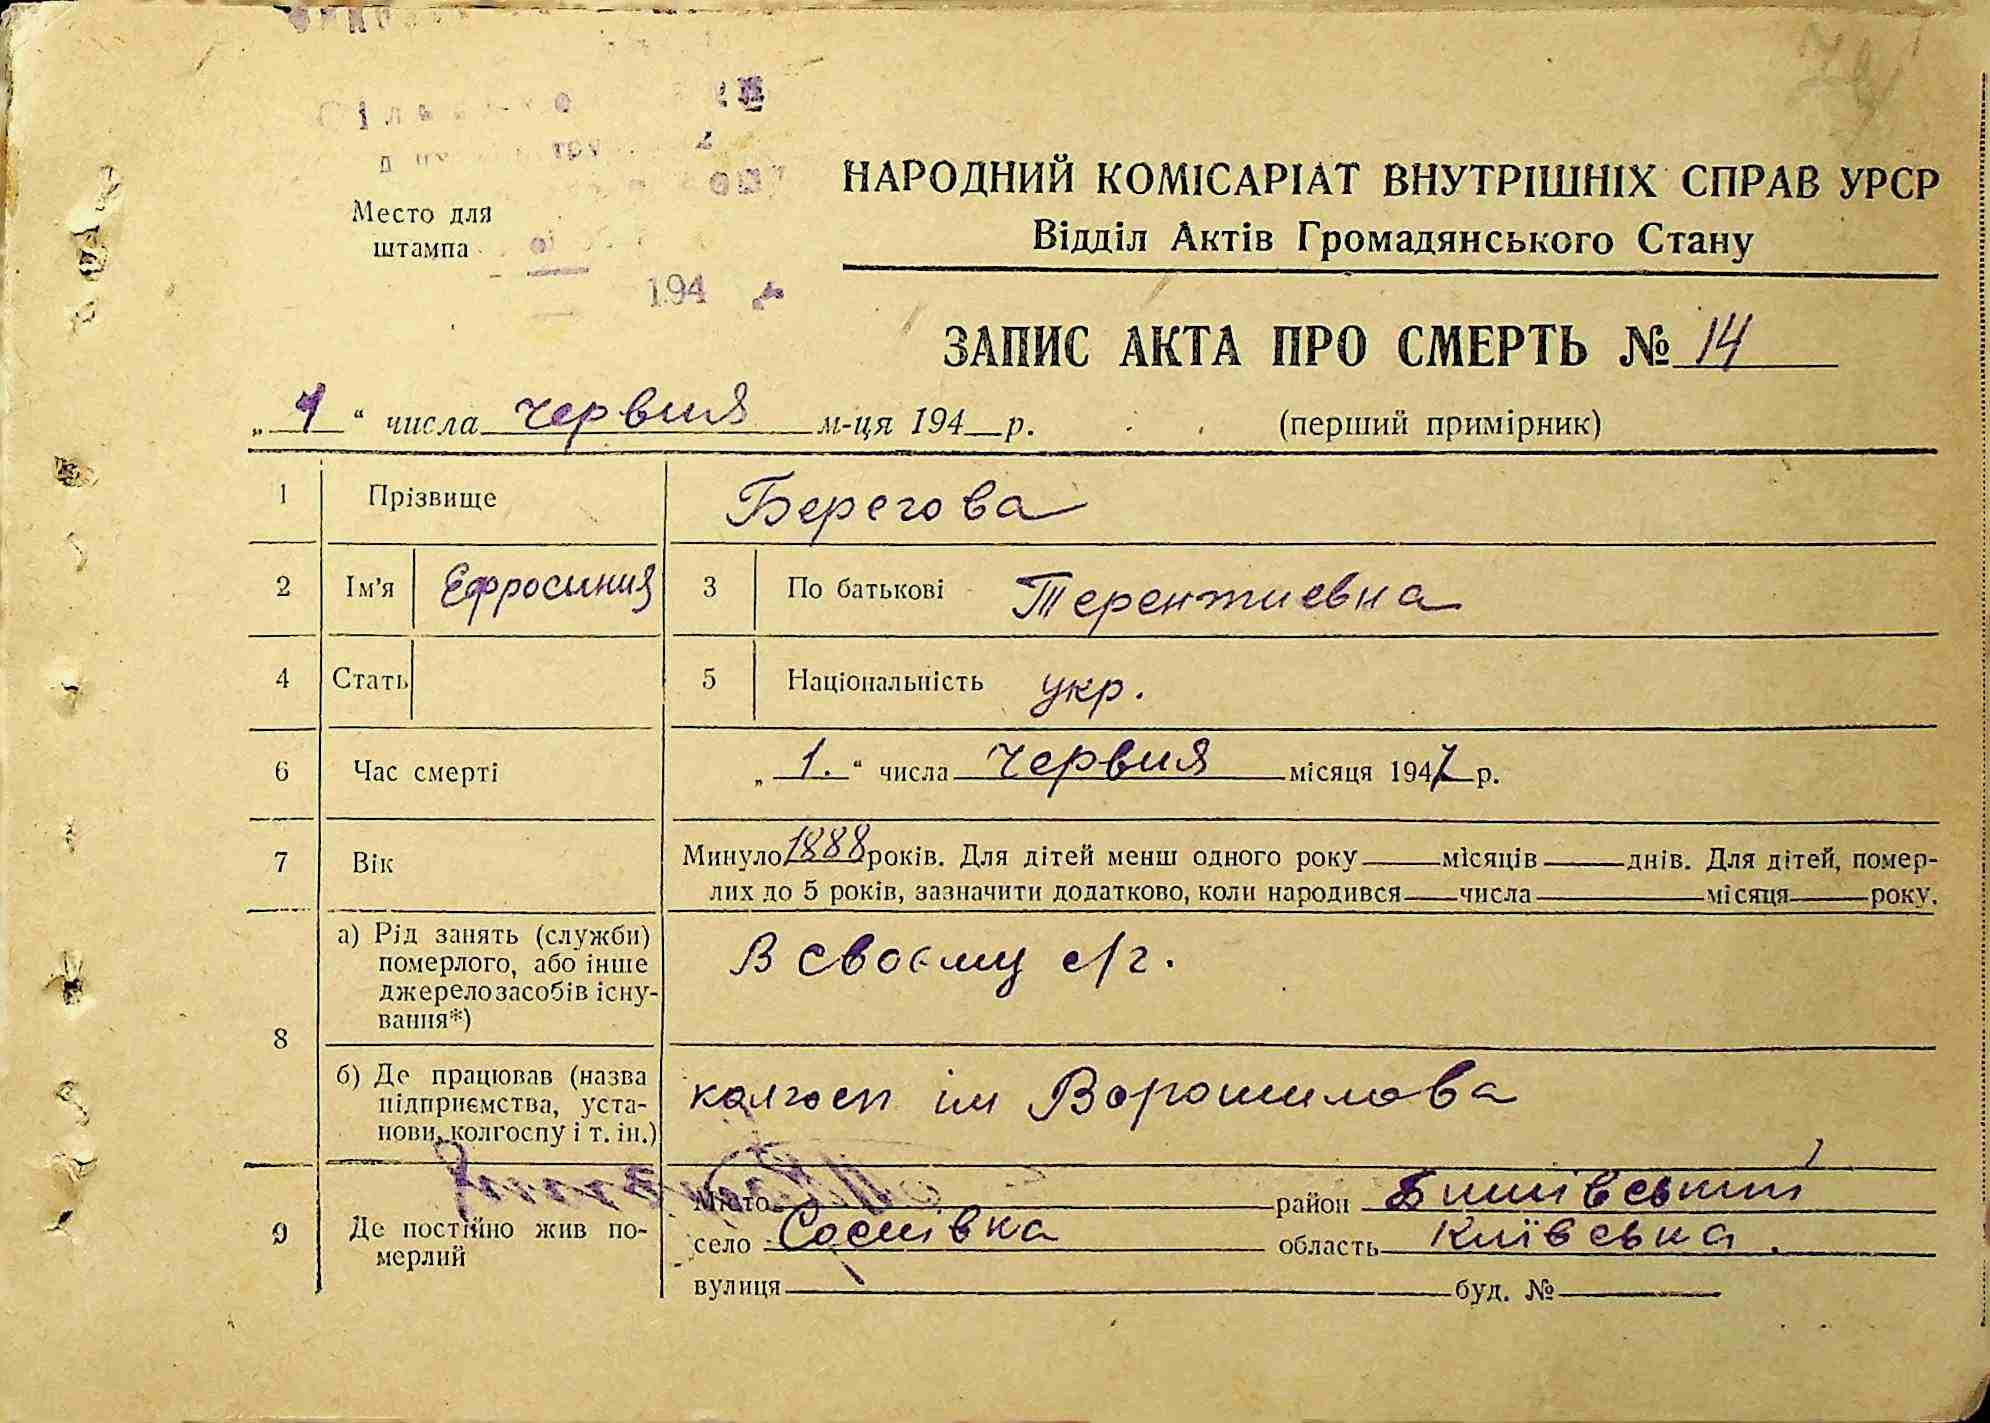 Место для
штампа
194
НАРОДНИЙ КОМІСАРІАТ ВНУТРІШНІХ СПРАВ УРСР
Відділ Актів Громадянського Стану
ЗАПИС АКТА ПРО СМЕРТЬ № 14
„ 1 “ числа червня м-ця 194 р. (перший примірник)
1 Прізвище Берегова
2 Ім'я Ефросиния 3 По батькові Терентиевна
4 Стать 5 Національність укр.
6 Час смерті „ 1. “ числа червня місяця 1947 р.
7 Вік Минуло 1888 років. Для дітей менш одного року місяців днів. Для дітей, помер-
лих до 5 років, зазначити додатково, коли народився числа місяця року.
8 а) Рід занять (служби)
померлого, або інше
джерело засобів існу-
вання*)
В своєму с/г.
б) Де працював (назва
підприємства, уста-
нови, колгоспу і т. ін.)
колгосп ім Ворошилова
9 Де постійно жив по-
мерлий
Місто район
село Соснівка область Київська.
вулиця буд. №